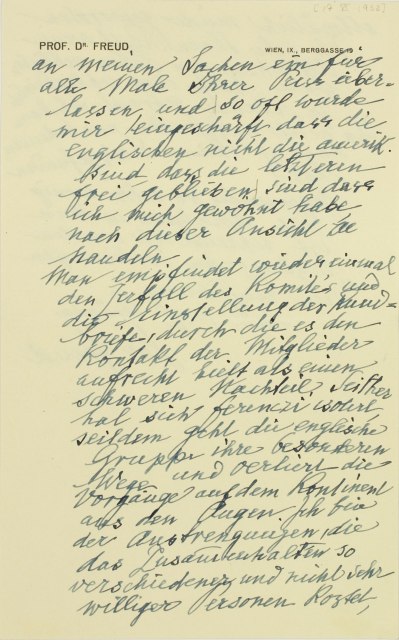 [17 II 1932]
PROF. DR. FREUD,
WIEN, IX., BERGGASSE 19
an meinen Sachen ein für
alle Male Ihrer Press über-
lassen, und so oft wurde
mir eingeschärft dass die
englischen nicht die amerik.
sind dass die letzteren
frei geblieben sind dass
ich mich gewöhnt habe
nach dieser Ansicht zu
handeln.
Man empfindet wieder einmal
den Zerfall des Komités und
die Einstellung der Rund-
briefe, durch die es den
Kontakt der Mitglieder
aufrecht hielt als einen
schweren Nachteil. Seither
hat sich Ferenczi isolirt,
seitdem geht die englische
Gruppe ihre besonderen
Wege und verliert die
Vorgänge auf dem Kontinent
aus den Augen. Ich bin
der Anstrengungen, die
das Zusammenhalten so
verschiedener und nicht sehr
williger Personen kostet,